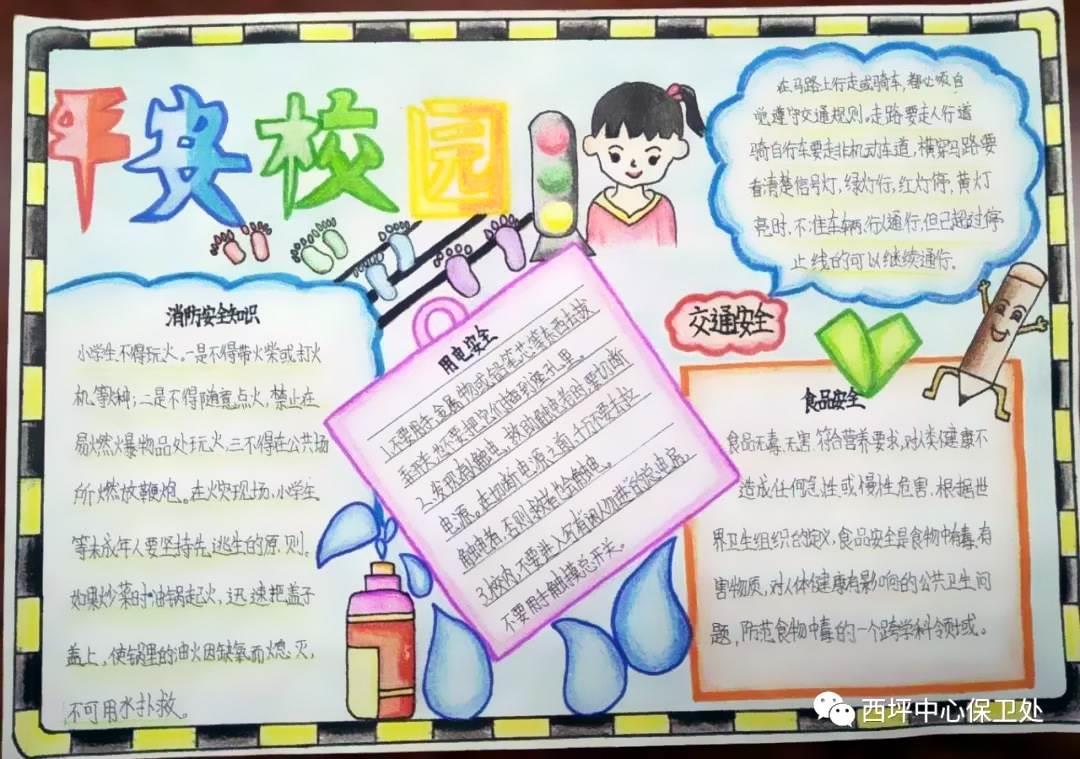 平安校园
在马路上行走或骑车,都必须自
觉遵守交通规则。走路要走人行道
骑自行车要走非机动车道,横穿马路要
看清楚信号灯,绿灯行,红灯停,黄灯
亮时,不准车辆、行人通行,但已超过停
止线的可以继续通行。
交通安全
消防安全知识
小学生不得玩火。一是不得带火柴或打火
机等火种;二是不得随意点火,禁止在
易燃爆物品处玩火,三不得在公共场
所燃放鞭炮。在火灾现场,小学生
等未成年人要坚持先逃生的原则。
如果炒菜时油锅起火,迅速把盖子
盖上,使锅里的油火因缺氧而熄灭,
不可用水扑救。
用电安全
1.不要用手、金属物或铅笔芯等东西去拨
弄开关,也不要把它们插到座孔里。
2.发现有人触电,救助触电者时要切断
电源。在切断电源之前,千万不要去拉
触电者,否则救者也会触电。
3.校内,不要进入写有闲人勿进的总电房。
不要用手触摸总开关。
食品安全
食品无毒、无害,符合营养要求,对人体健康不
造成任何急性或慢性危害,根据世
界卫生组织的定义,食品安全是食物中有毒、有
害物质,对人体健康有影响的公共卫生问
题,防范食物中毒的一个跨学科领域。
西坪中心保卫处